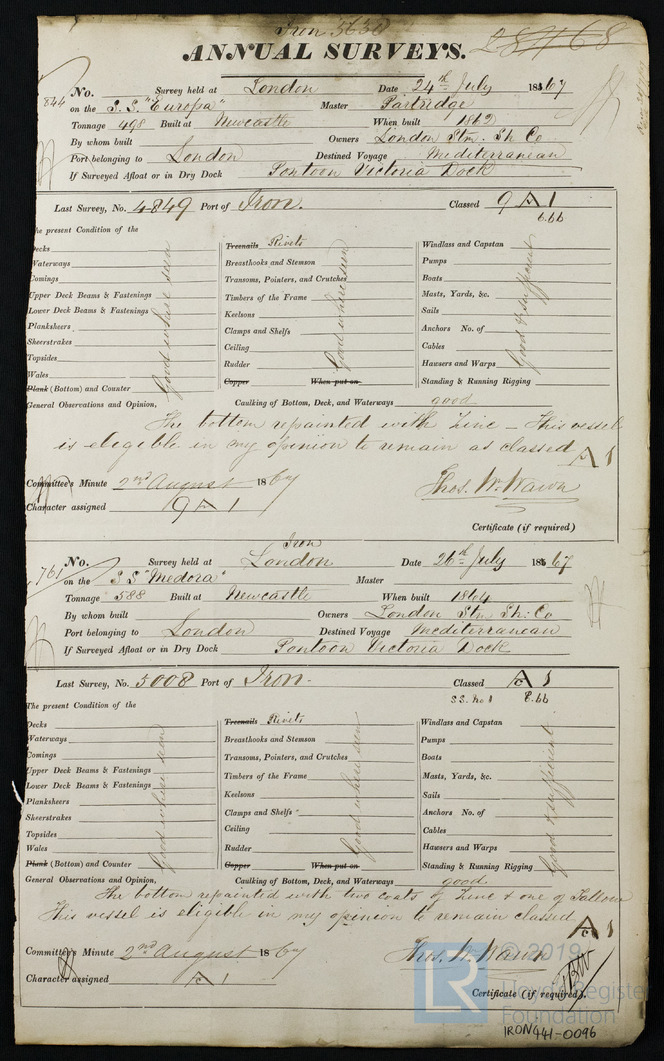 Iron 5630
ANNUAL SURVEYS.
No. Survey held at London Date 24th July 1867
844 on the S.S. "Europa" Master Partridge
Tonnage 498 Built at Newcastle When built 1862
By whom built Owners London Stm. Sh Co
Port belonging to London Destined Voyage Mediterranean
If Surveyed Afloat or in Dry Dock Pontoon Victoria Dock
Last Survey, No. 4849 Port of Iron. Classed 9 A 1
6.66
The present Condition of the
Decks
Waterways
Comings
Upper Deck Beams & Fastenings
Lower Deck Beams & Fastenings
Planksheers
Sheerstrakes
Topsides
Wales
Plank (Bottom) and Counter
Good where seen
Treenails Rivets
Breasthooks and Stemson
Transoms, Pointers, and Crutches
Timbers of the Frame
Keelsons
Clamps and Shelfs
Ceiling
Rudder
Copper When put on
Good where seen
Windlass and Capstan
Pumps
Boats
Masts, Yards, &c.
Sails
Anchors No. of
Cables
Hawsers and Warps
Standing & Running Rigging
Good & sufficient
General Observations and Opinion, Caulking of Bottom, Deck, and Waterways good
The bottom repainted with Zinc - This vessel
is eligible in my opinion to remain as classed A 1
Committee's Minute 2nd August 1867
Character assigned 9 A 1
Thos. W. Wawn
Certificate (if required)
Iron
No. Survey held at London Date 26th July 1867
761 on the S.S "Medora" Master
Tonnage 588 Built at Newcastle When built 1864
By whom built Owners London Stm. Sh: Co
Port belonging to London Destined Voyage Mediterranean
If Surveyed Afloat or in Dry Dock Pontoon Victoria Dock
Last Survey, No. 5008 Port of Iron. Classed A 1
S.S. No 1 8.66
The present Condition of the
Decks
Waterways
Comings
Upper Deck Beams & Fastenings
Lower Deck Beams & Fastenings
Planksheers
Sheerstrakes
Topsides
Wales
Plank (Bottom) and Counter
Good where seen
Treenails Rivets
Breasthooks and Stemson
Transoms, Pointers, and Crutches
Timbers of the Frame
Keelsons
Clamps and Shelfs
Ceiling
Rudder
Copper When put on
Good where seen
Windlass and Capstan
Pumps
Boats
Masts, Yards, &c.
Sails
Anchors No. of
Cables
Hawsers and Warps
Standing & Running Rigging
Good & sufficient
General Observations and Opinion, Caulking of Bottom, Deck, and Waterways good
The bottom repainted with two coats of Zinc & one of Tallow
This vessel is eligible in my opinion to remain classed A 1
Committee's Minute 2nd August 1867
Character assigned A 1
Thos. W. Wawn
Certificate (if required).
LR © 2019
Lloyd's Register
Foundation
IRON441-0096